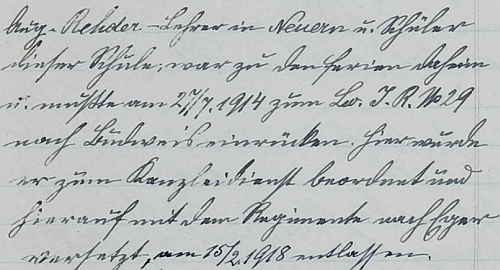 Aug. Rehder - Lehrer in Neuern u. Schüler
dieser Schule; war zu den Ferien daheim
u. mußte am 27/7. 1914 zum Lw. I. R. No 29
nach Budweis einrücken. Hier wurde
er zum Kanzleidienst beordnet und
hierauf mit dem Regimente nach Eger
versetzt, am 15/2. 1918 entlassen.